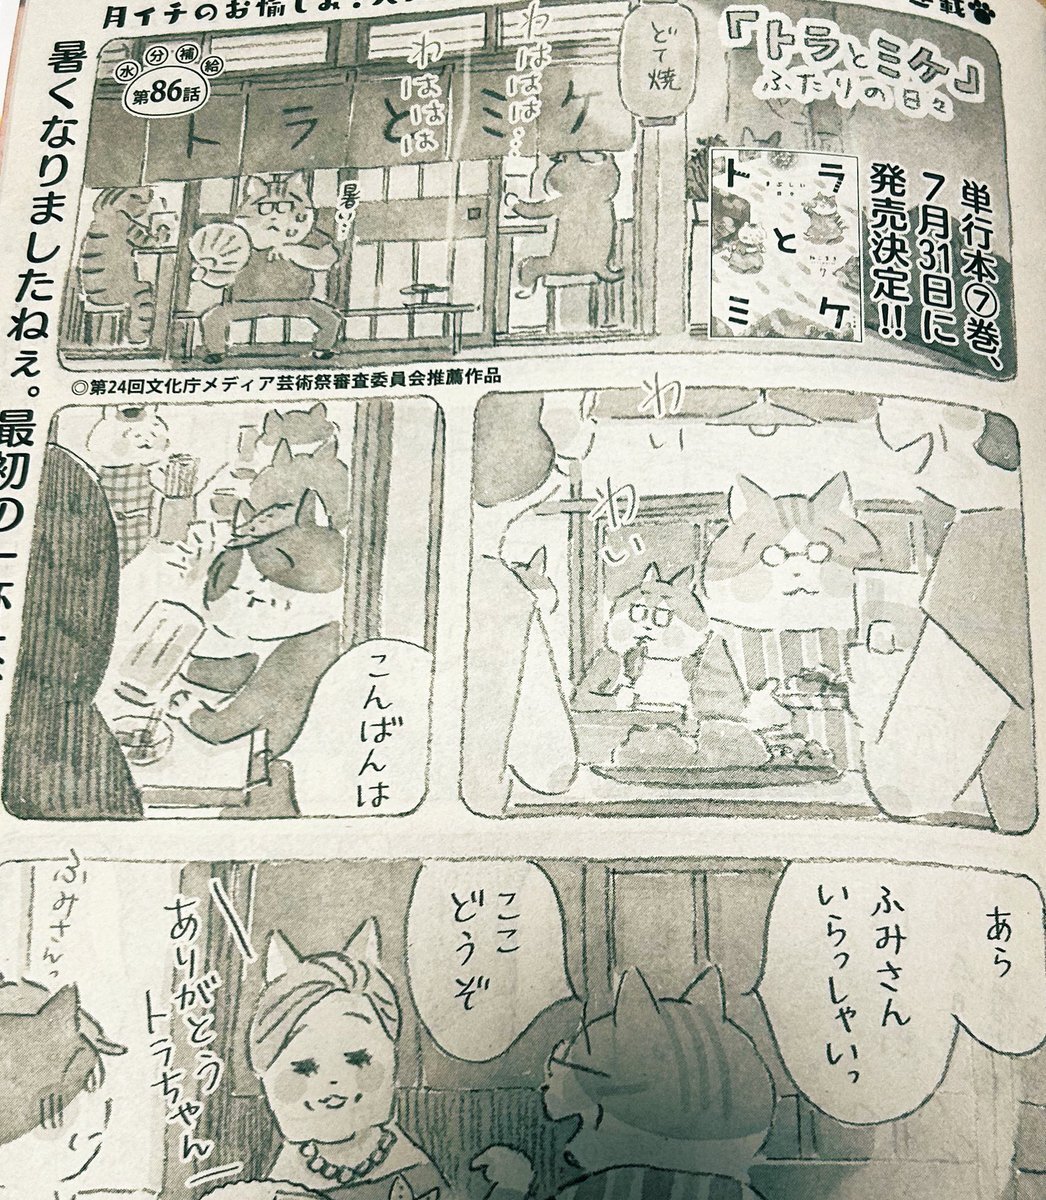 月イチのお愉しみ!
載
暑くなりましたねぇ。最初の一杯
水分補給
第86話
『トラとミケ』
ふたりの日々
単行本⑦巻、
7月31日に
発売決定!!
トラ
と
ミケ
7
どて焼
わはは…
わははは
トラとミケ
暑い…
◎第24回文化庁メディア芸術祭審査委員会推薦作品
わい
わい
こんばんは
あら
ふみさん
いらっしゃいっ
ここ
どうぞ
ありがとう
トラちゃん
ふみさんっ